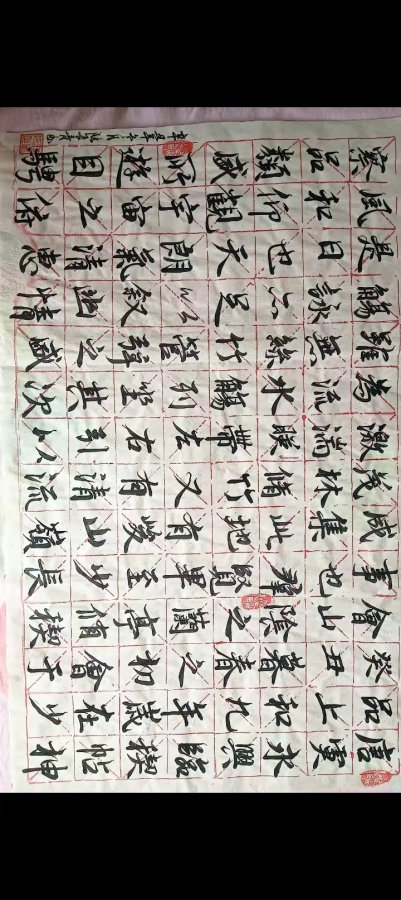 唐虞永興臨禊帖神
品上和九年歲在少
癸丑暮春之初會于
會山陰之蘭亭脩禊
事也羣賢畢至少長
咸集此地有峻山嶺
茂林脩竹又有清流
激湍映帶左右引以
為流水觴列坐其次
雖無絲竹管弦之盛
觴詠亦足以敘幽情
是日也天朗氣清惠
風和仰觀宇宙之俯
察品類盛所遊目騁